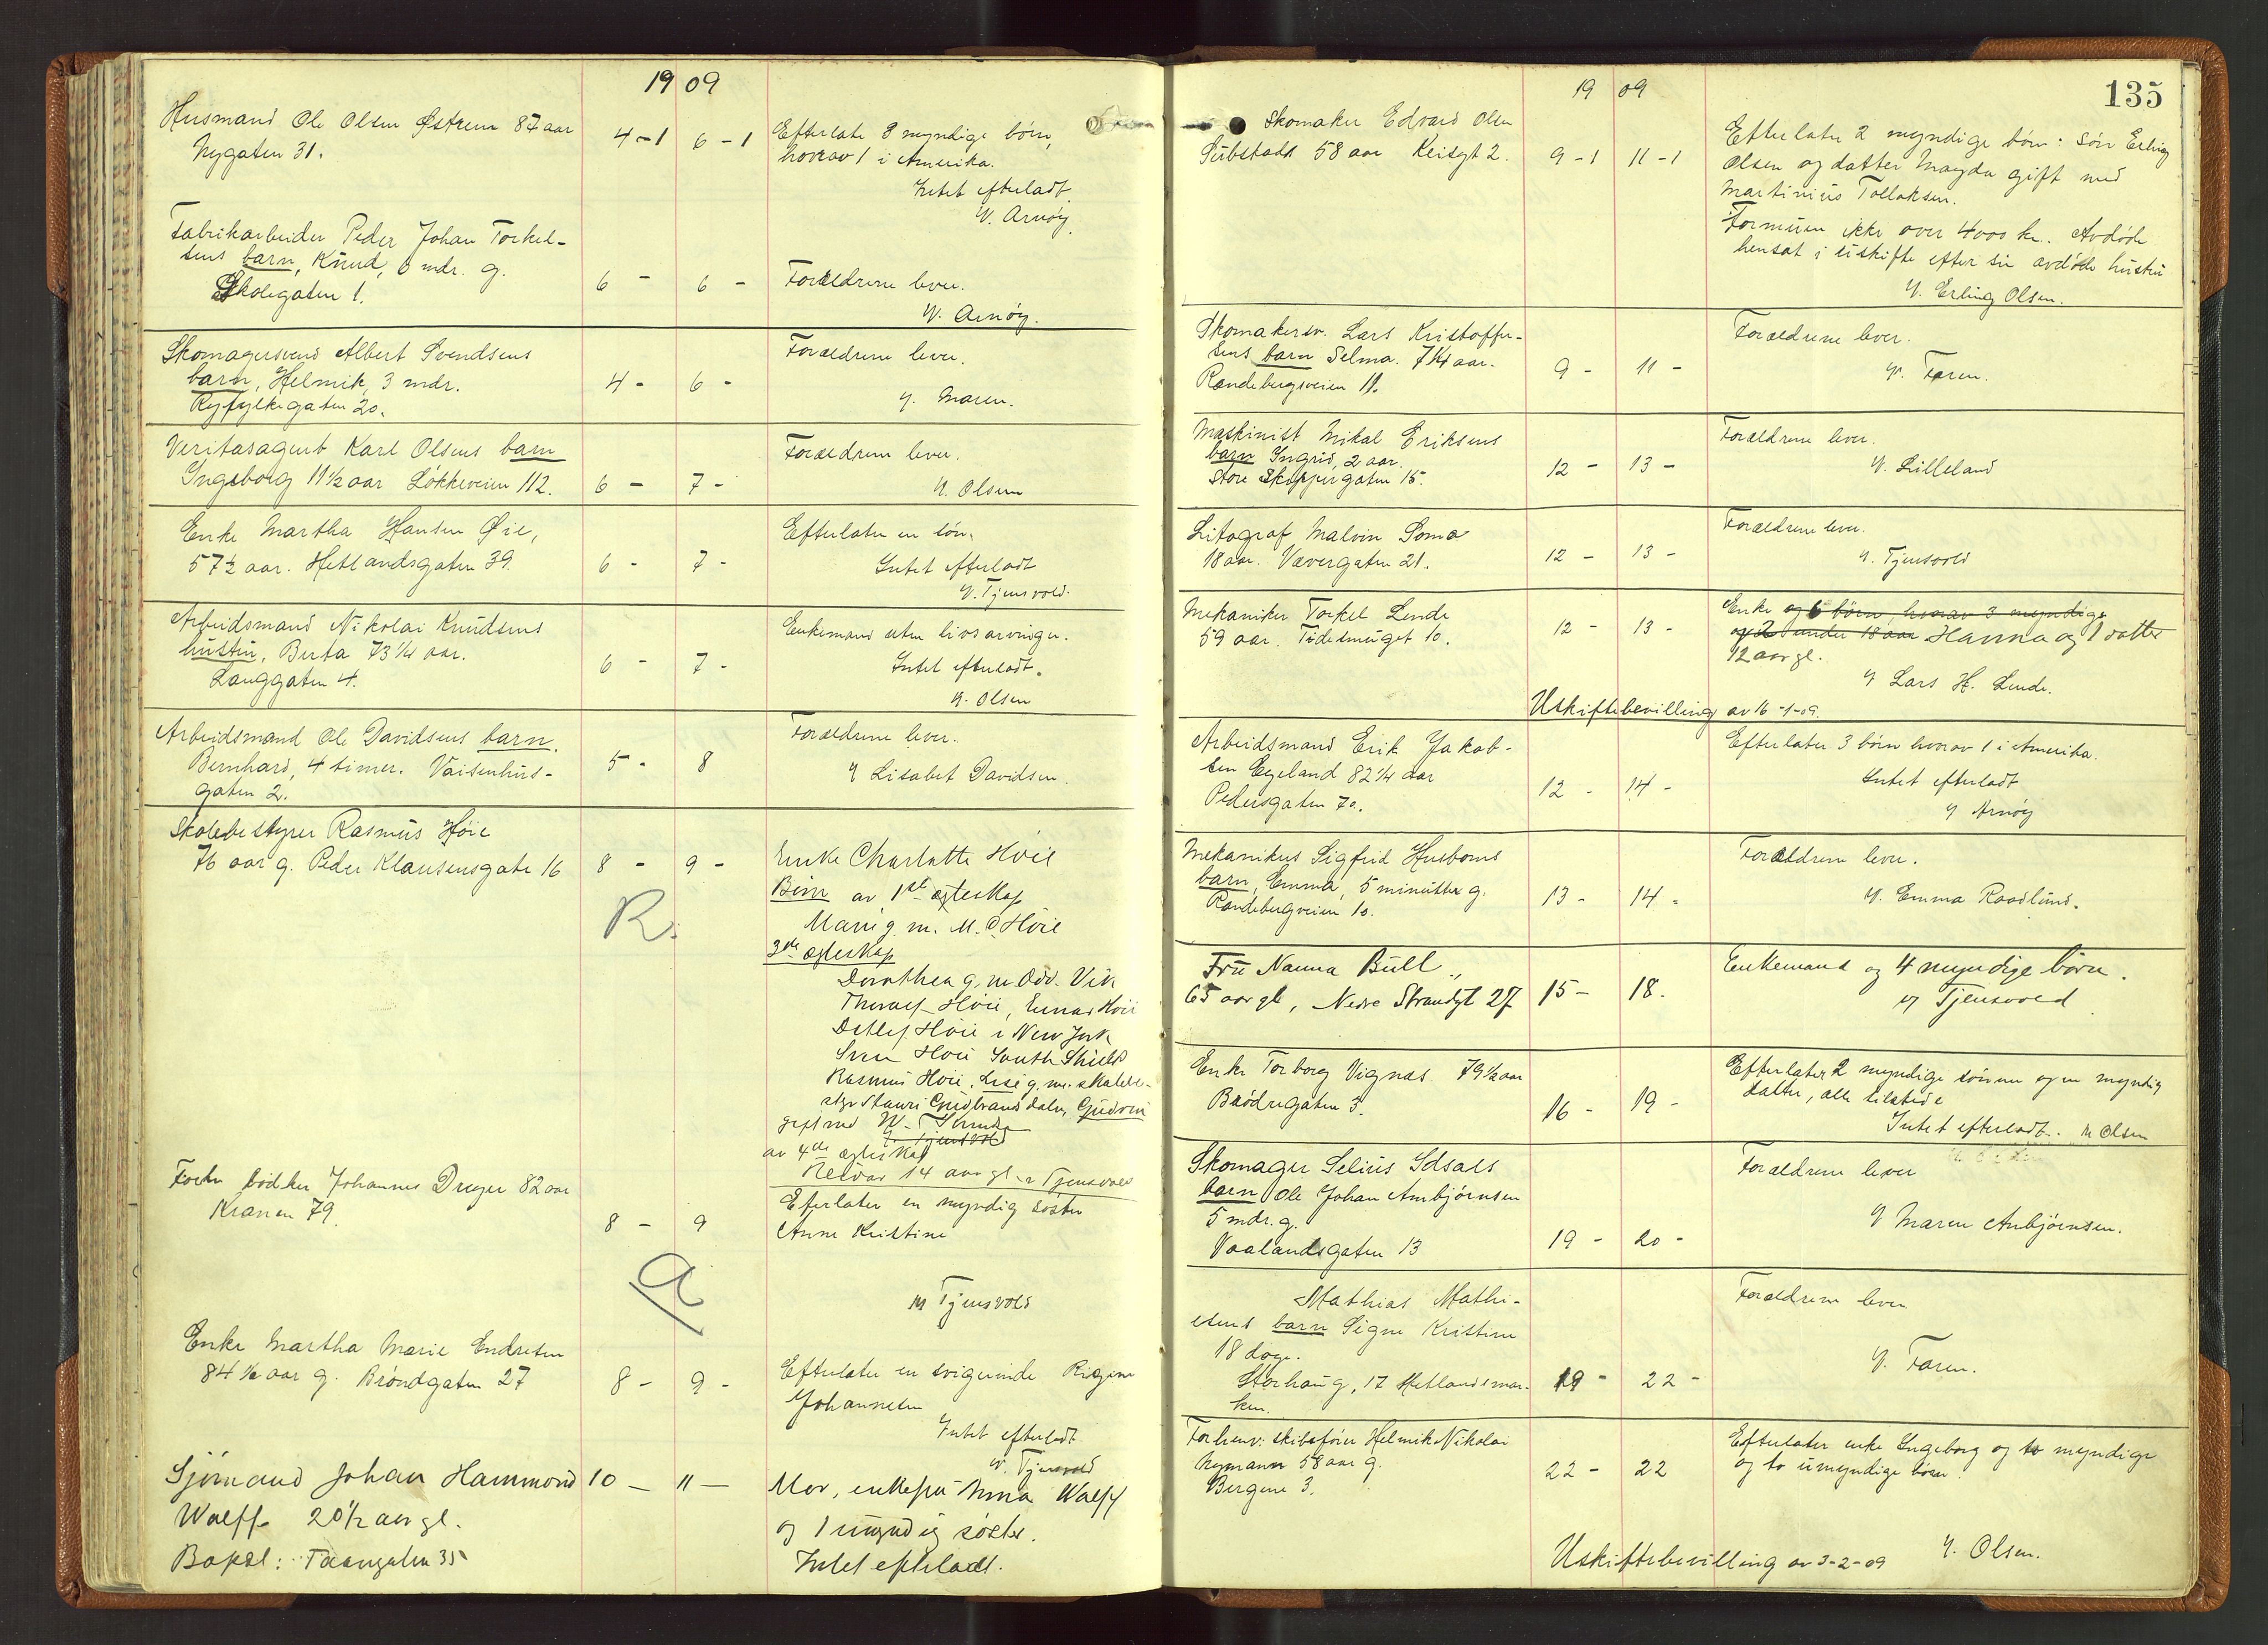 1909
Husmand Ole Olsen Østrem 87 aar
Nygaten 31.
4-1 6-1
Efterlate 8 myndige børn,
hvorav 1 i Amerika.
Intet efterladt
V. Arnøy.
Fabrikarbeider Peder Johan Torkel-
sens barn, Knud, 6 mdr. g.
Skolegaten 1.
6 - 6 -
Forældrene lever.
V. Arnøy.
Skomagersvend Albert Svendsens
barn, Helmik, 3 mdr.
Ryfylkegaten 20.
4 - 6 -
Forældrene lever.
V. Maren.
Veritasagent Karl Olsens barn
Ingeborg 11½ aar Løkkeveien 112.
6 - 7 -
Forældrene lever.
V. Olsen
Enke Martha Hansen Øie,
57½ aar. Hetlandsgaten 39.
6 - 7 -
Efterlater en søn.
Intet efterladt
V. Tjensvold.
Arbeidsmand Nikolai Knudsens
hustru, Berta 73¼ aar.
Langgaten 4.
6 - 7 -
Enkemand uten livsarvinger.
Intet efterladt.
V. Olsen
Arbeidsmand Ole Davidsens barn,
Bernhard, 4 timer. Vaisenhus-
gaten 2.
5 - 8
Forældrene lever.
V Lisabet Davidsen.
Skolebestyrer Rasmus Høie
76 aar g. Peder Klausensgate 16
8 - 9 -
R.
Enke Charlotte Høie
Børn av 1ste ægteskap
Marie g. m. M. O. Høie
3de ægteskap
Dorothea g. m. Odd. Vik
Thoralf Høie, Einar Høie
Detlef Høie i New York
Sven Høie South Shields
Rasmus Høie, Lise g. m. skolebe-
styr Gudbrandsdalen, Gudrun
gift med
V. Tjensvold
av 4de ægteskap
Reidar 14 aar gl. V Tjensvold
Forhv bødker Johannes Dreyer 82 aar
Kranen 79.
8 - 9
R
Efterlater en myndig søster
Anne Kristine
V Tjensvold
Enke Martha Marie Endresen
84½ aar g. Brøndgaten 27
8 - 9 -
Efterlater en svigerinde Regine
Johannesen
Intet efterladt
V. Tjensvold
Sjømand Johan Hammond
Wolff 20½ aar gl.
Bopæl: Taangaten 35
10 - 11 -
Mor, enkefru Anna Wolff
og 1 umyndig søster.
Intet efterladt.
1909
135
Skomaker Edvard Olsen
Substadt 58 aar Reisgt 2.
9-1 11-1
Efterlater 2 myndige børn: Søn Erling
Olsen og datter Magda gift med
Martinius Tollaksen.
Formuen ikke over 4000 kr. Avdøde
hensat i uskifte efter sin avdøde hustru
V. Erling Olsen.
Skomakersv. Lars Kristoffer-
sens barn Selma. 7¼ aar.
Randebergsveien 11.
9 - 11 -
Forældrene lever.
V. Faren.
Maskinist Mikal Eriksens
barn Ingrid, 2 aar.
Store Skippergaten 15.
12 - 13 -
Forældrene lever.
V. Lilleland
Litograf Malvin Soma
18 aar. Vævergaten 21.
12 - 13 -
Forældrene lever.
V. Tjensvold
Mekaniker Torkel Lende
59 aar. Tidesmuget 10.
12 - 13 -
Enke og 6 børn, hvorav 3 myndige
og 2 under 18 aar Hanna og 1 datter
12 aar gl.
V Lars H. Lende.
Uskiftebevilling av 16-1-09.
Arbeidsmand Erik Jakob-
sen Egeland 82¼ aar
Pedersgaten 70.
12 - 14 -
Efterlater 3 børn hvorav 1 i Amerika.
Intet efterladt
V Arnøy
Mekanikus Sigfrid Husboms
barn, Emma, 5 minutter g.
Randebergveien 10.
13 - 14 -
Forældrene lever.
V. Emma Roadlund.
Fru Nanna Bull,
65 aar gl, Nedre Strandgt 27
15 - 18.
Enkemand og 4 myndige børn.
V Tjensvold
Enke Torborg Vignæs 79½ aar
Brødregaten 3.
16 - 19 -
Efterlater 2 myndige sønner og en myndig
datter, alle tilstede
Intet efterladt. V Olsen
Skomager Selius Idsals
barn Ole Johan Ambjørnsen
5 mdr. g.
Vaalandsgaten 13
19 - 20 -
Forældrene lever
V Maren Anbjørnsen.
Mathias Mathi-
esens barn Signe Kristine
18 dage.
Storhaug, 17 Hetlandsmar-
ken.
19 - 22 -
Forældrene lever
V. Faren.
Forhenv: skibsfører Helmik Nikolai
Nymann 58 aar g.
Bergene 3.
22 - 22
Efterlater enke Ingeborg og to myndige
og to umyndige børn.
Uskiftebevilling av 3-2-09
V. Olsen.